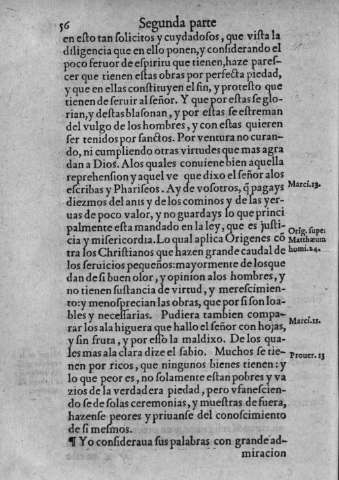 56 Segunda parte
en esto tan solicitos y cuydadosos, que vista la
diligencia que en ello ponen, y considerando el
poco feruor de espiritu que tienen, haze pares-
cer que tienen estas obras por perfecta piedad,
y que en ellas constituyen el fin, y protesto que
tienen de seruir al señor. Y que por estas se glo-
rian, y destas blasonan, y por estas se estreman
del vulgo de los hombres, y con estas quieren
ser tenidos por sanctos. Por ventura no curan-
do, ni cumpliendo otras virtudes que mas agra
dan a Dios. A los quales conuiene bien aquella
reprehension y aquel ve que dixo el señor alos
escribas y Phariseos. Ay de vosotros, q̃ pagays
Marci. 13.
diezmos del anis y de los cominos y de las yer-
uas de poco valor, y no guardays lo que princi
palmente esta mandado en la ley, que es justi-
cia y misericordia. Lo qual aplica Origenes cõ
Orig. supe:
tra los Christianos que hazen grande caudal de
Matthæum
los seruicios pequeños: mayormente de los que
homi. 24.
dan de si buen olor, y opinion alos hombres, y
no tienen sustancia de virtud, y merescimien-
to: y menosprecian las obras, que por si son loa-
bles y necessarias. Pudiera tambien compa-
rar los ala higuera que hallo el señor con hojas,
Marci. 11.
y sin fruta, y por esso la maldixo. De los qua-
les mas ala clara dize el sabio. Muchos se tie-
Prouer. 13
nen por ricos, que ningunos bienes tienen: y
lo que peor es, no solamente estan pobres y va
zios de la verdadera piedad, pero vfanescien-
do se de solas ceremonias, y muestras de fuera,
hazense peores y priuanse del conoscimiento
de si mesmos.
¶ Yo consideraua sus palabras con grande ad-
miracion